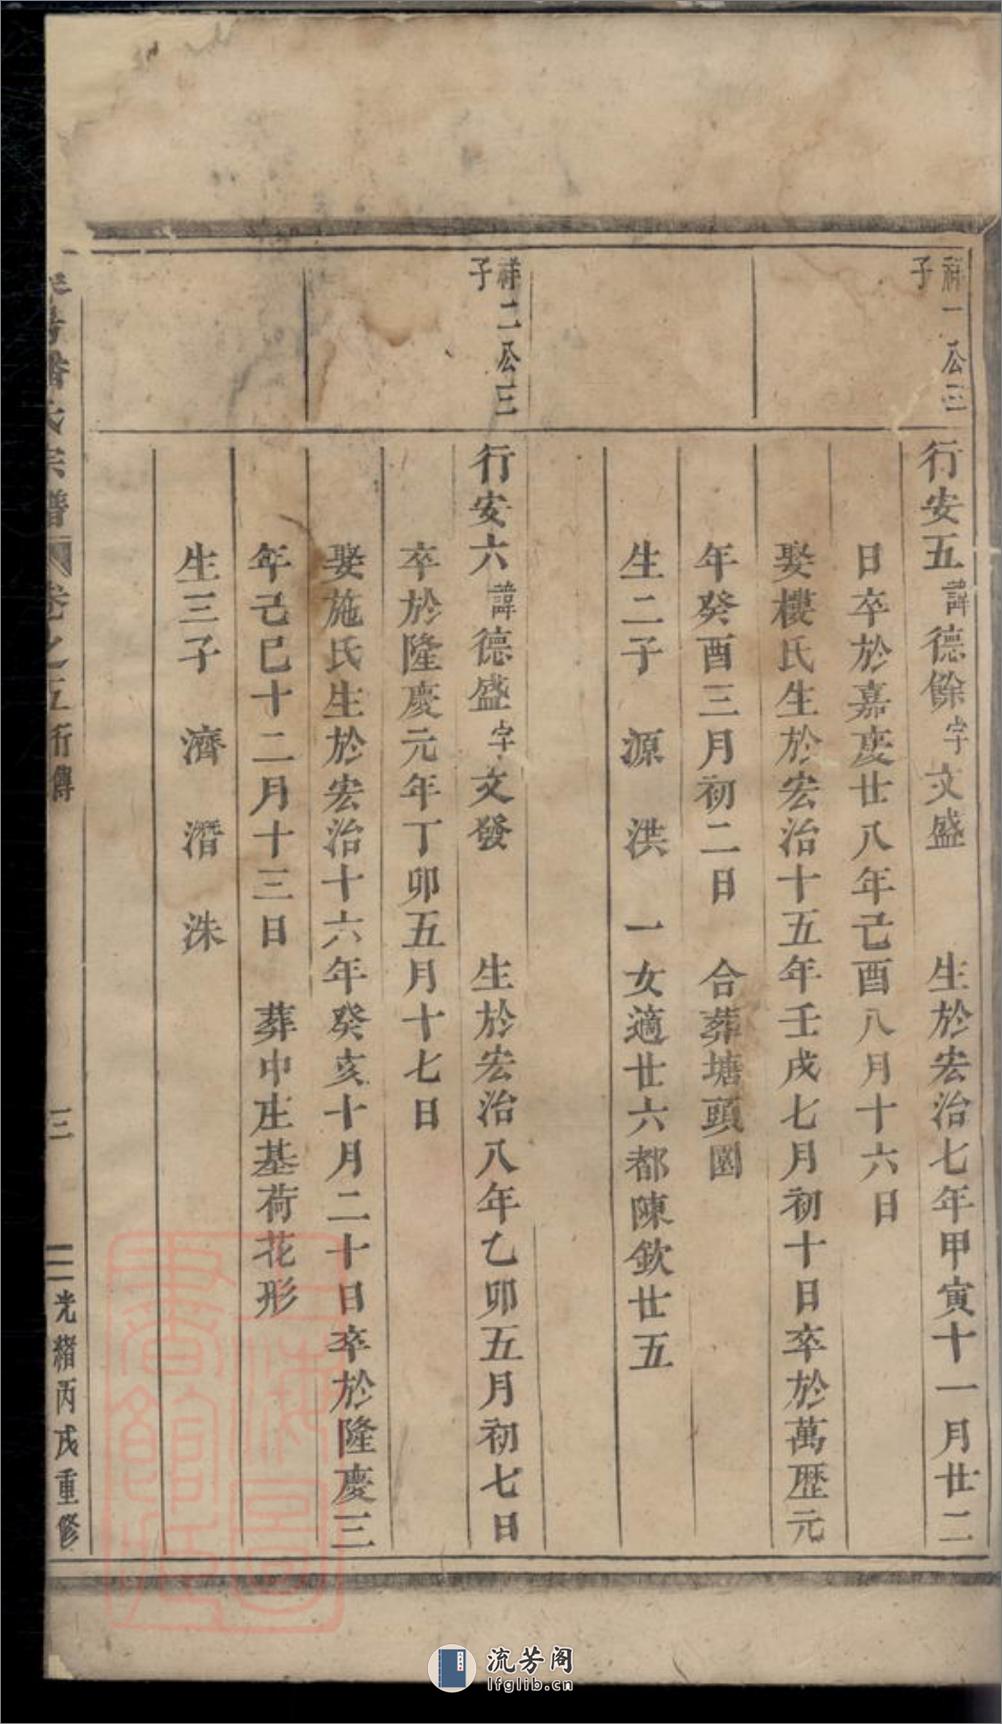 祥一公三子
行安五 諱德餘 字文盛 生於宏治七年甲寅十一月廿二
日卒於嘉慶廿八年己酉八月十六日
娶樓氏生於宏治十五年壬戌七月初十日卒於萬歷元
年癸酉三月初二日 合葬塘頭園
生二子 源 洪 一女適廿六都陳欽廿五
祥二公三子
行安六 諱德盛 字文發 生於宏治八年乙卯五月初七日
卒於隆慶元年丁卯五月十七日
娶施氏生於宏治十六年癸亥十月二十日卒於隆慶三
年己巳十二月十三日 葬中庄基荷花形
生三子 濟 潛 洙
氏宗譜 卷之五行傳 三 光緒丙戌重修
流芳阁
lfglib.cn